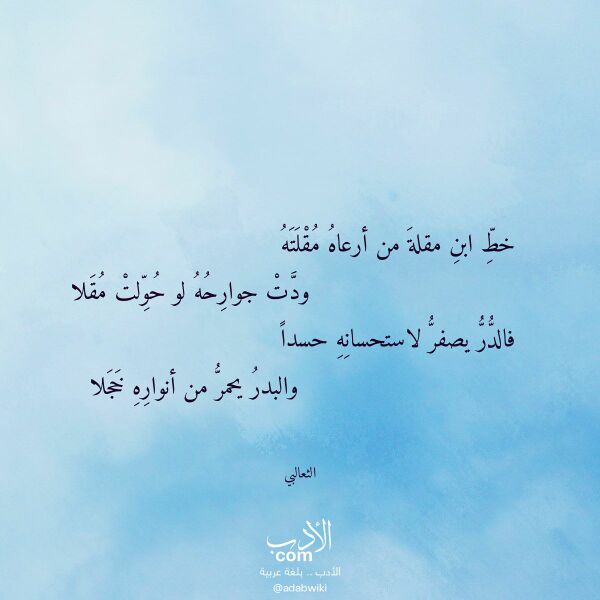 خطِّ ابنِ مقلةَ من أرعاهُ مُقْلَتَهُ
ودَّتْ جوارِحُهُ لو حُوِّلتْ مُقَلا
فالدُّرُّ يصفرُّ لاستحسانِهِ حسداً
والبدرُ يحمرُّ من أنوارِهِ خَجَلا
الثعالبي
الأدب
com
الأدب .. بلغة عربية
@adabwiki